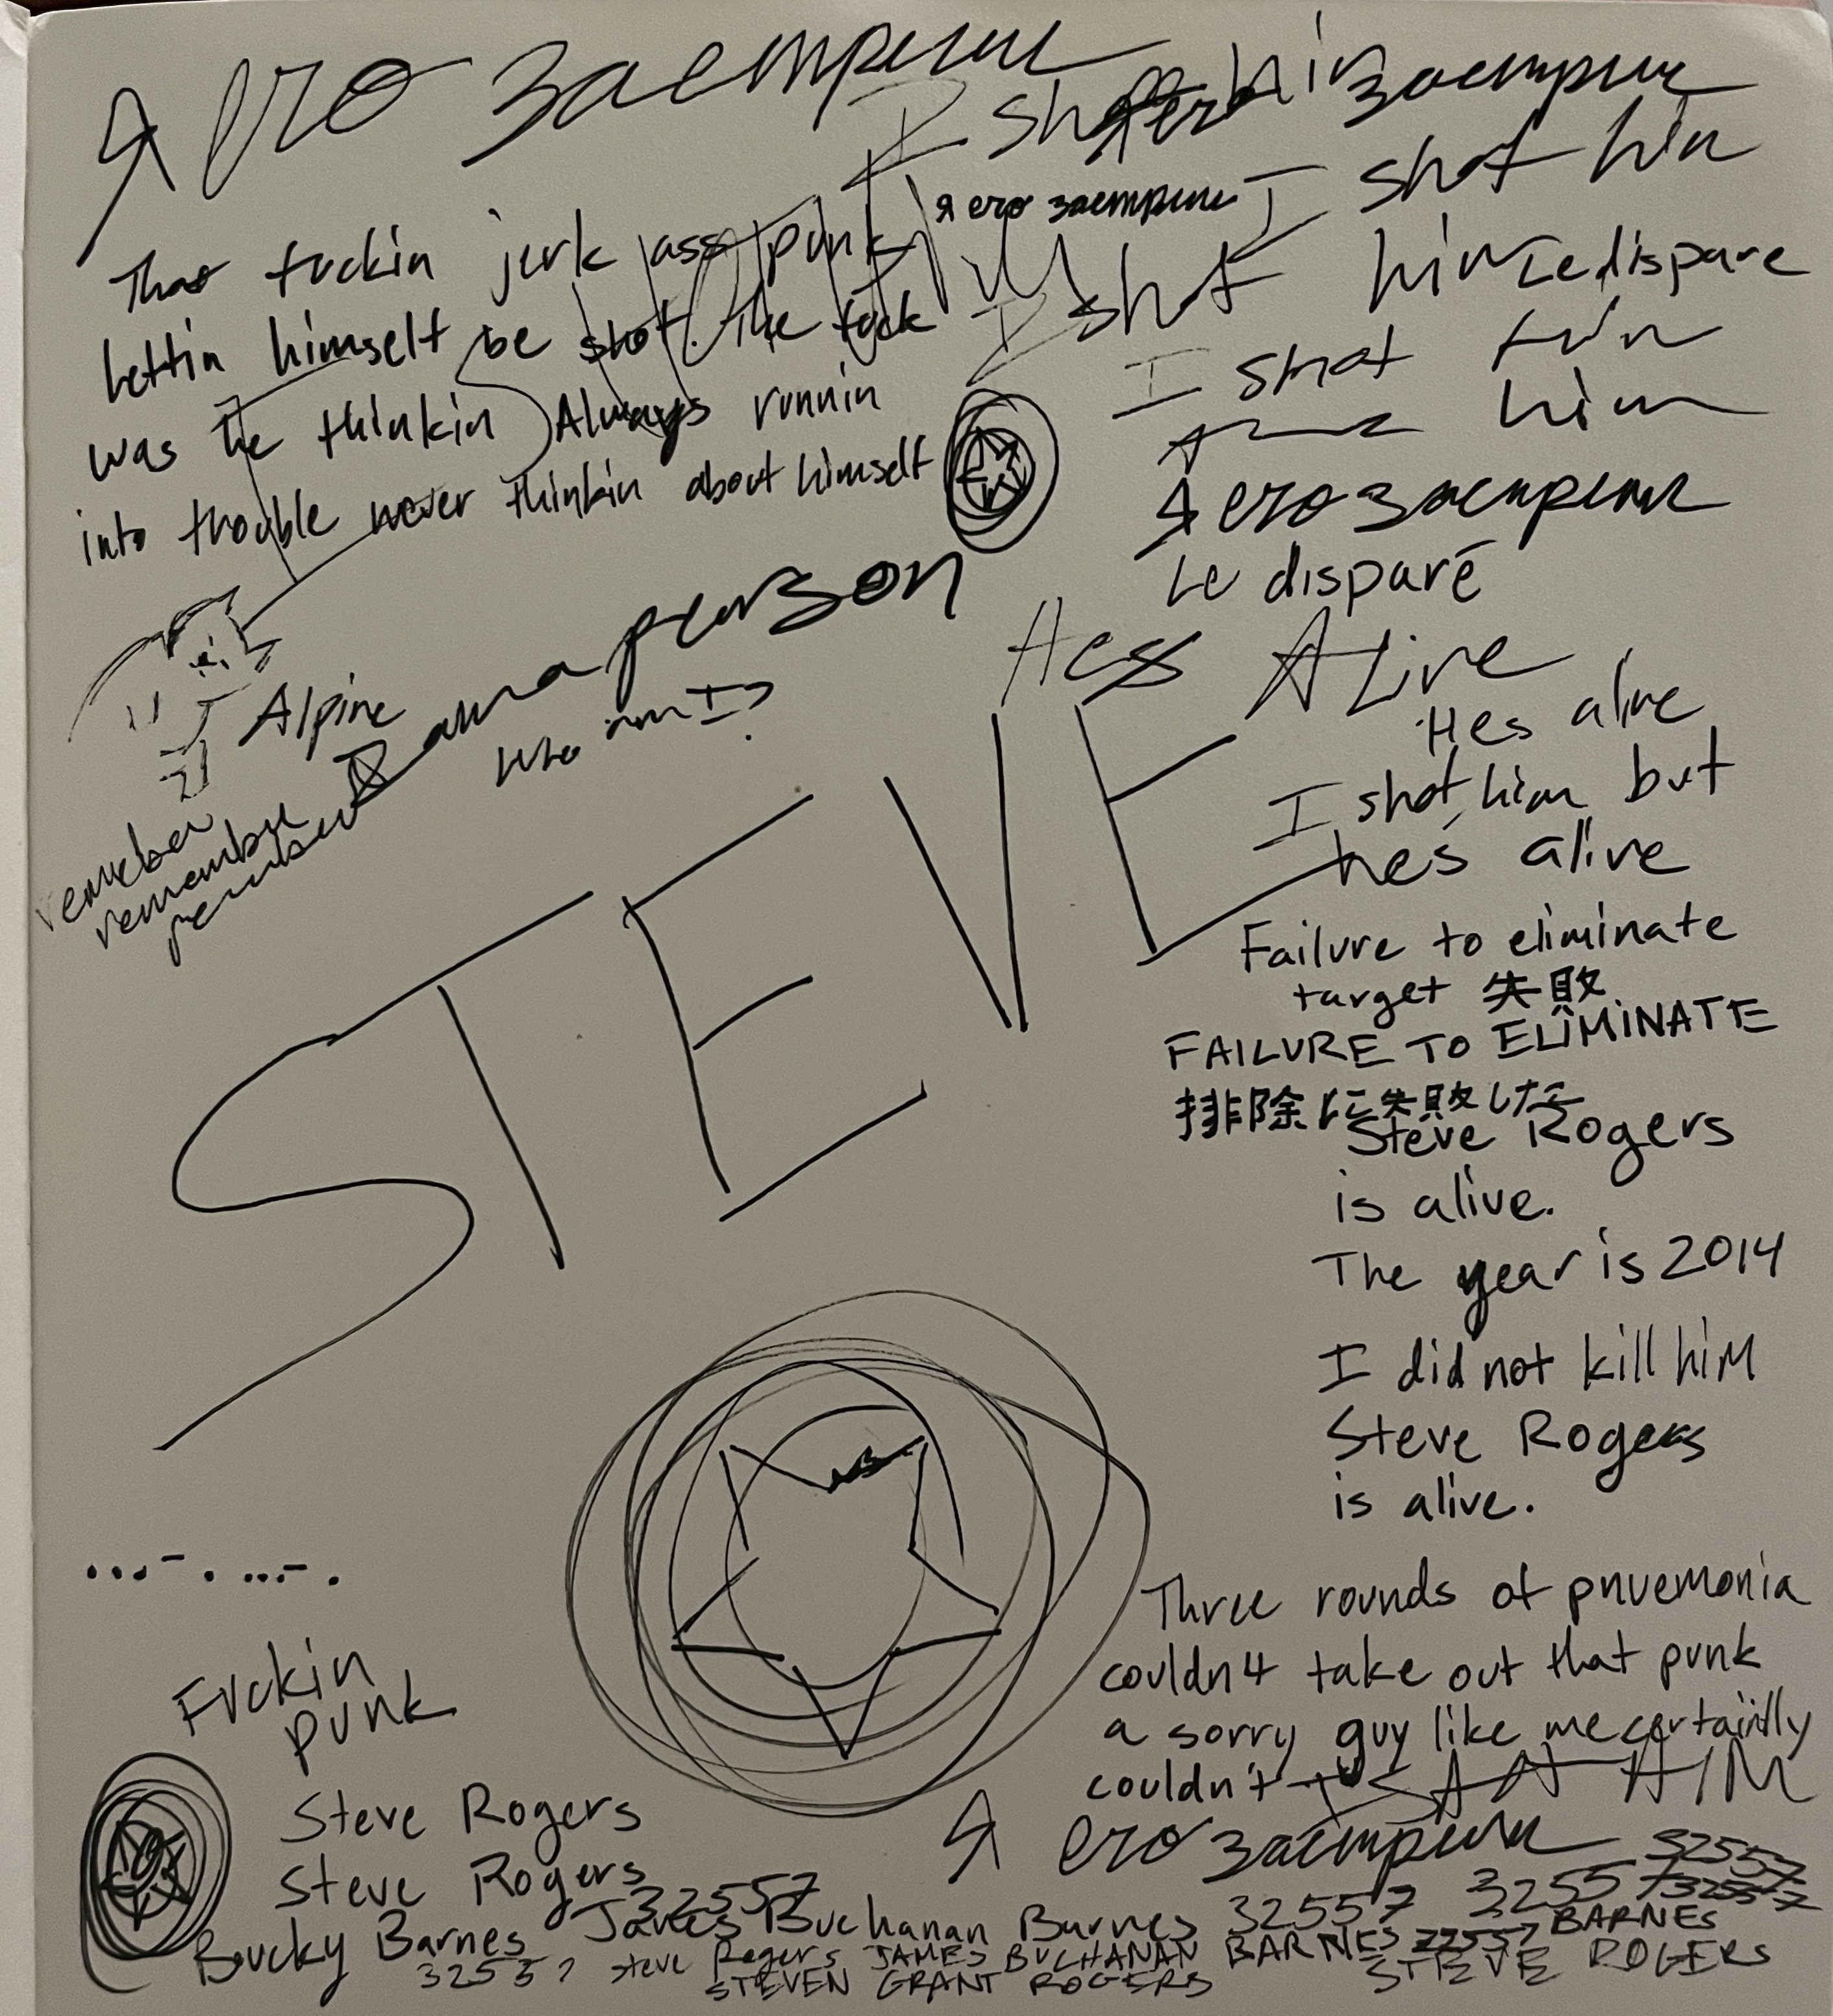 Я его застрелил
I shot him
Я его застрелил
That fuckin jerk ass punk
Я его застрелил
I shot him
Lettin himself be shot. The fuck
I shot him
Le dispare
was he thinkin Always runnin
I shot him
him
into trouble never thinkin about himself
Я его застрелил
Le disparé
I am a person
Who am I?
Alpine
remember
remember
remember
Hes Alive
Hes alive
I shot him but
he's alive
STEVE
Failure to eliminate
target 失敗
FAILURE TO ELIMINATE
排除に失敗した
Steve Rogers
is alive.
The year is 2014
I did not kill him
Steve Rogers
is alive.
...- . ...- .
Three rounds of pnuemonia
couldn4 take out that punk
a sorry guy like me certainlly
couldn't
Fuckin
punk
I SHOT HIM
Я его застрелил
Steve Rogers
Steve Rogers
32557
32557 32557 32557
32557
Bucky Barnes James Buchanan Barnes
32557 Steve Rogers JAMES BUCHANAN BARNES 32557 BARNES
STEVEN GRANT ROGERS STEVE ROGERS